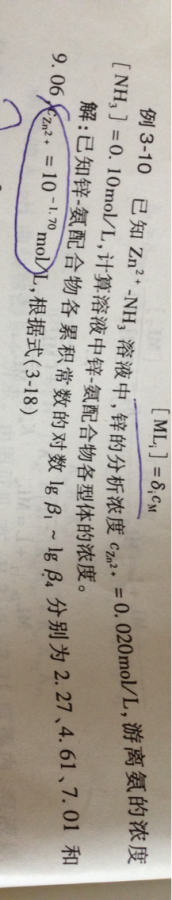 [MLᵢ]=δᵢc_M
例3-10 已知 Zn²⁺-NH₃ 溶液中,锌的分析浓度 c_Zn²⁺ =0.020mol/L,游离氨的浓度
[NH₃]=0.10mol/L,计算溶液中锌-氨配合物各型体的浓度。
解:已知锌-氨配合物各累积常数的对数 lg β₁ ~ lg β₄ 分别为 2.27、4.61、7.01 和
9.06,c_Zn²⁺ =10⁻¹·⁷⁰ mol/L,根据式(3-18)